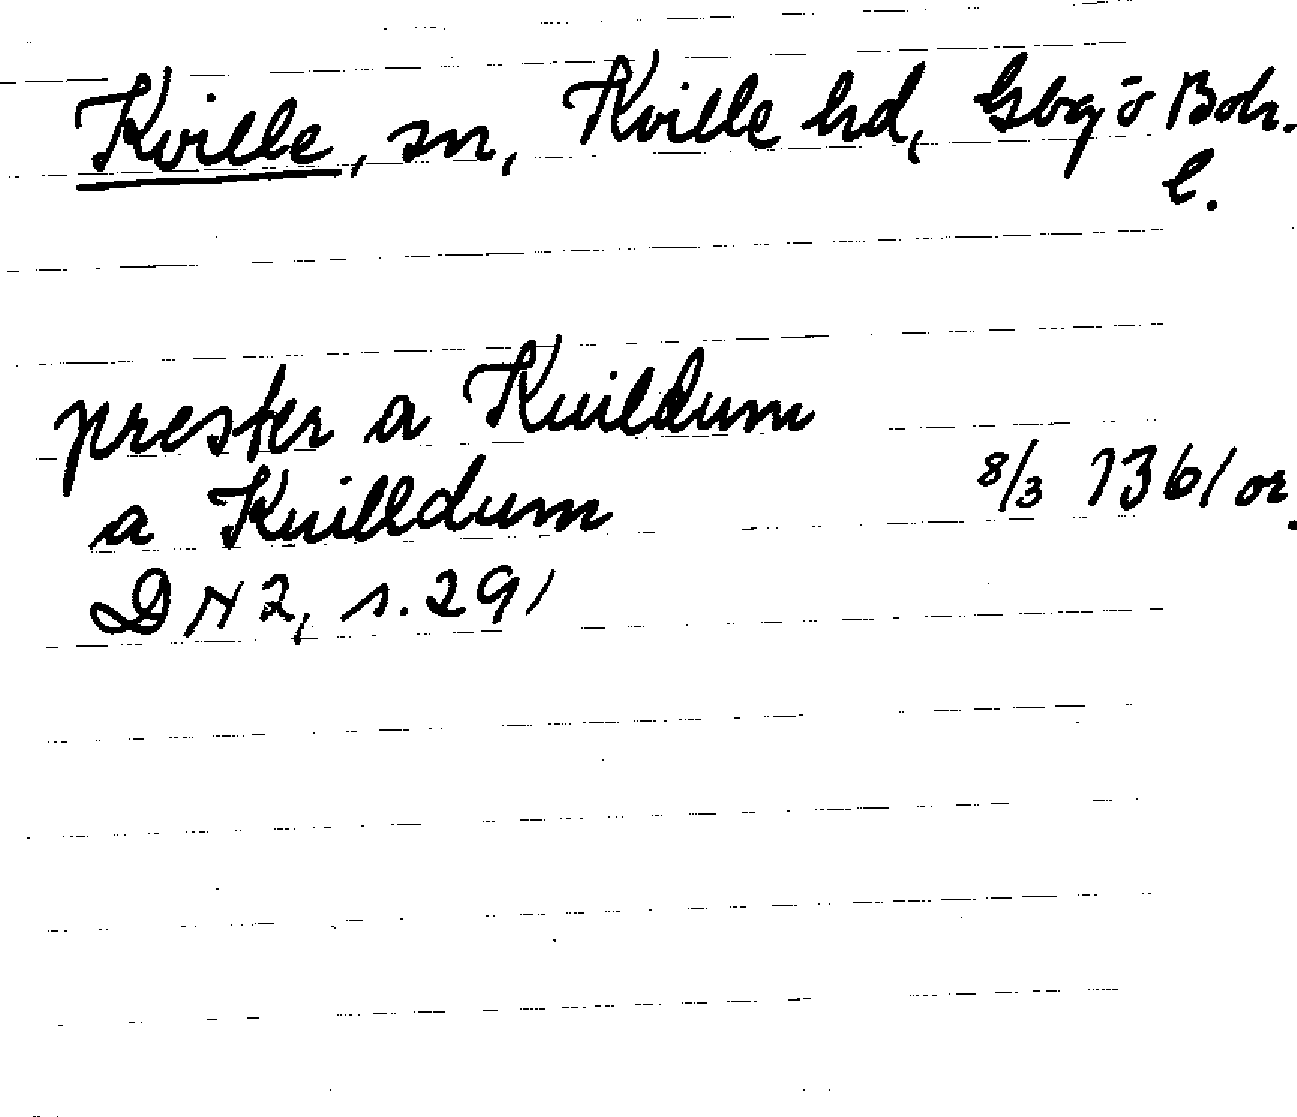 Kville, sn, Kville hd, Gbg o Boh.
l.
prester a Kuildum
a Kuilldum 8/3 1361 or.
DN 2, s. 291